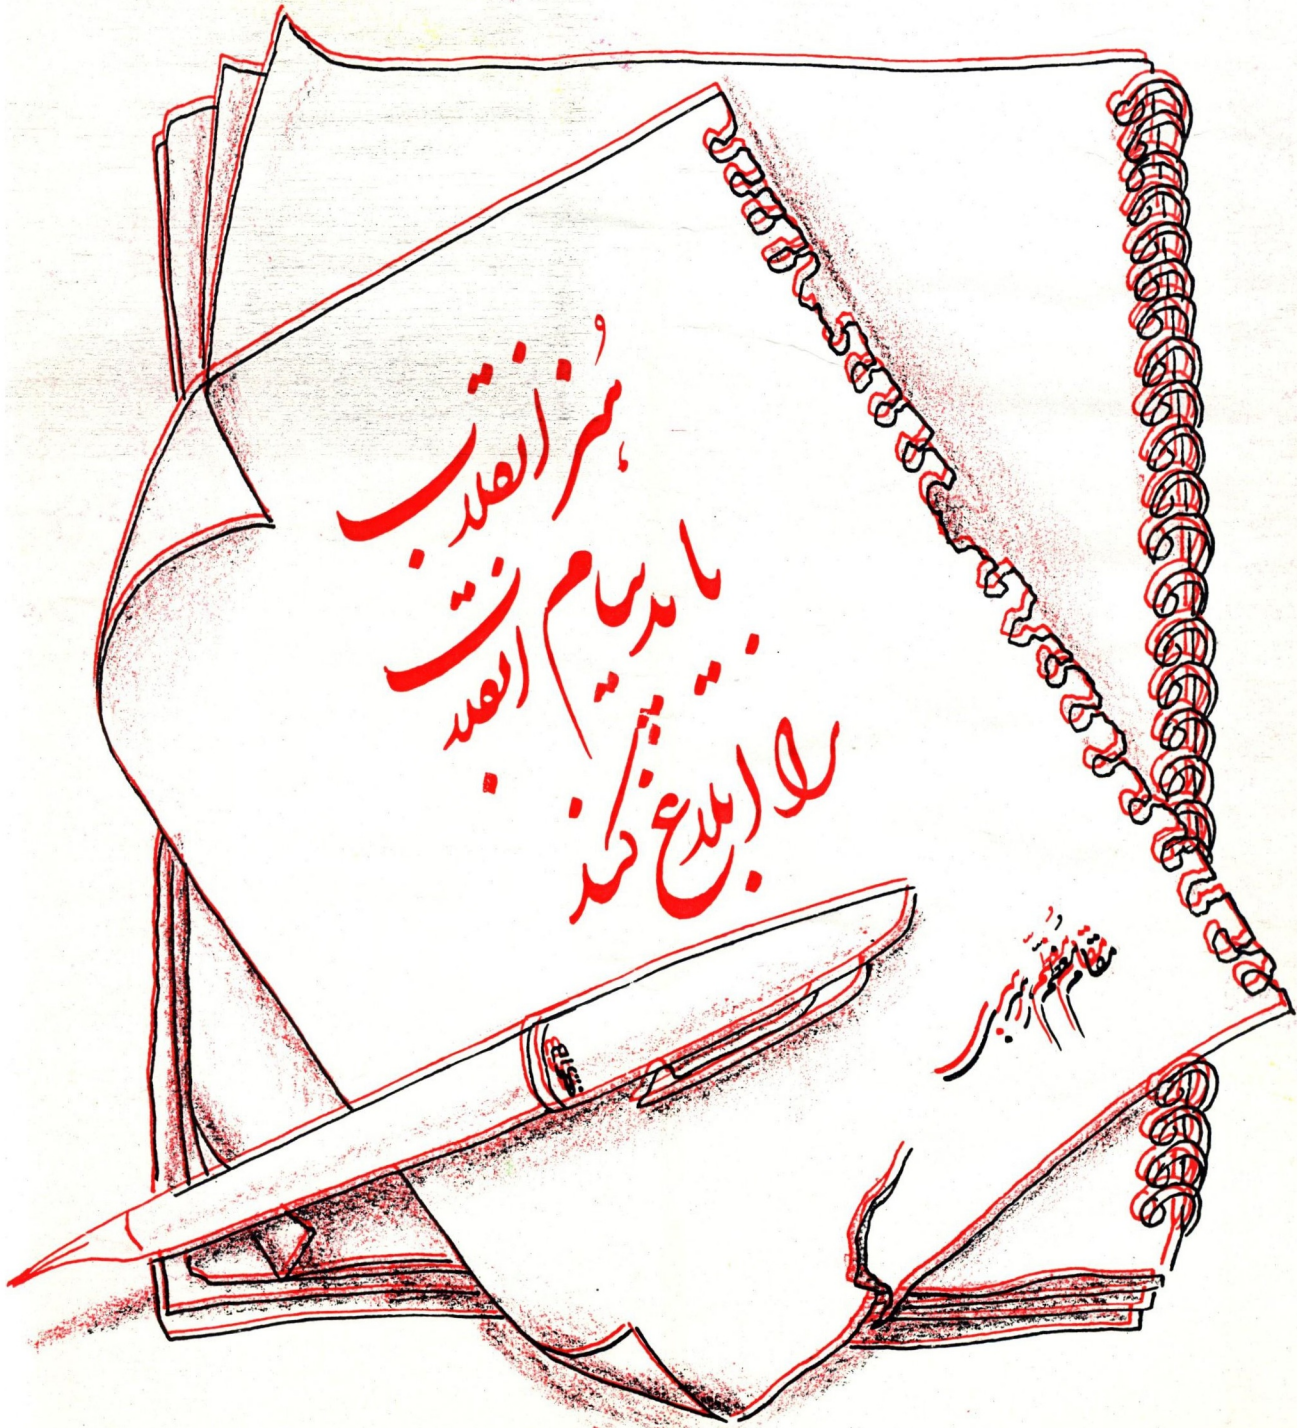 هنر انقلاب
باید پیام انقلاب
را ابلاغ کند
مقام معظم رهبری